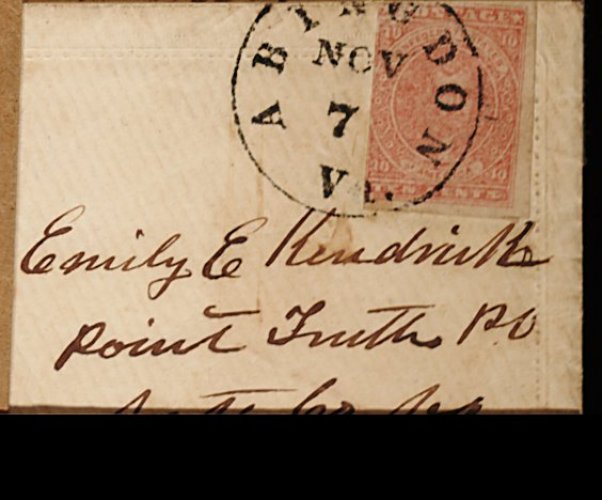 ABINGDON
NOV
7
Va.
POSTAGE
10 10
10 10
TEN CENTS
Emily E Kendrick
Point Truth PO
Co Va